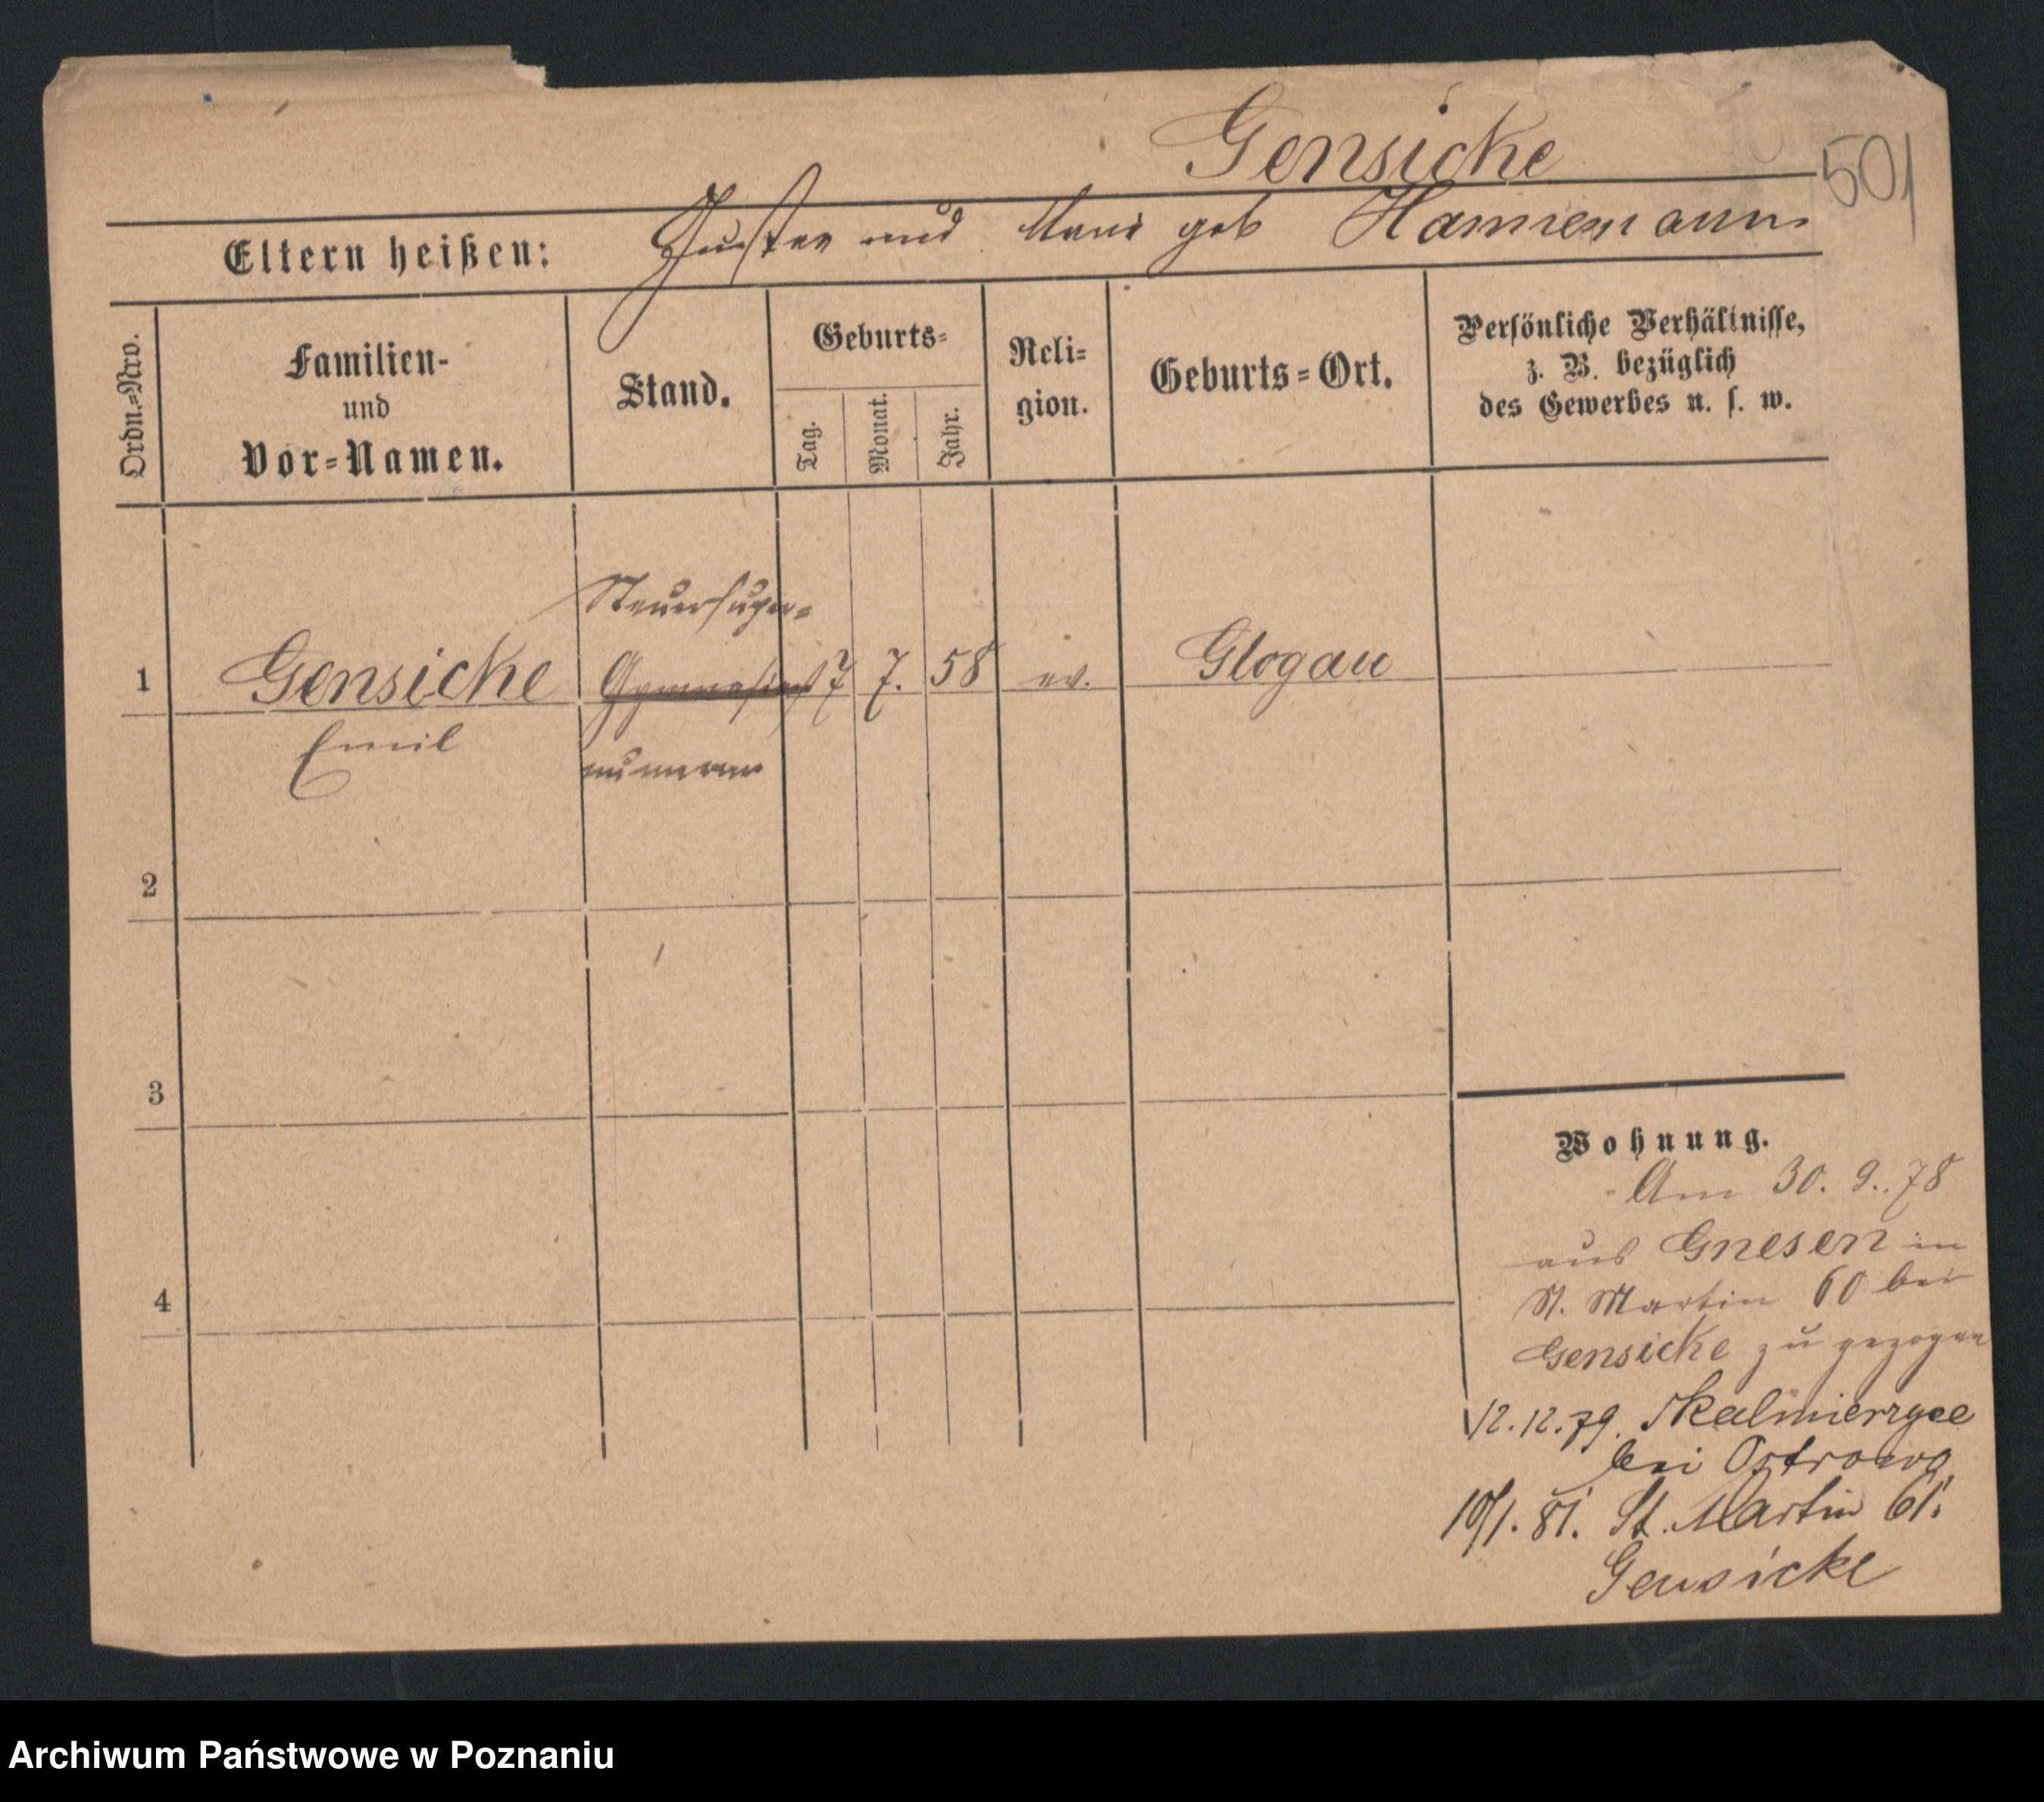 Gensicke
501
Eltern heißen: Gustav und Marie geb Hannemann
Ordn.-Nro.
Familien-
und
Vor-Namen.
Stand.
Geburts-
Tag.
Monat.
Jahr.
Reli-
gion.
Geburts-Ort.
Persönliche Verhältnisse,
z. B. bezüglich
des Gewerbes u. s. w.
Steuersuper-
1 Gensicke Gymnasiast 7 7. 58 ev. Glogau
Emil
numerar
2
3
4
Wohnung.
Am 30. 9. 78
aus Gnesen in
St. Martin 60 bei
Gensicke zu gezogen
12.12.79. Skalmierzyce
bei Ostrowo
10/1. 81. St. Martin 61.
Gensicke
Archiwum Państwowe w Poznaniu